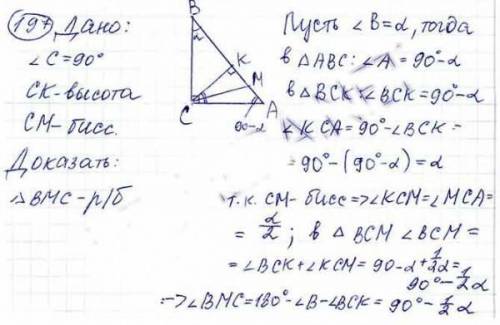 197 Дано:
∠C=90°
CK-высота
CM-бисс.
Доказать:
△BMC-р/б
B
α
K
M
C
A
90-α
Пусть ∠B=α, тогда
в △ABC: ∠A = 90°-α
в △BCK ∠BCK=90°-α
∠KCA=90°-∠BCK=
=90°-(90°-α)=α
т.к. CM- бисс=>∠KCM=∠MCA=
= α/2; в △BCM ∠BCM=
=∠BCK+∠KCM=90-α+1/2α=
90°-1/2α
=>∠BMC=180°-∠B-∠BCK= 90°-1/2α